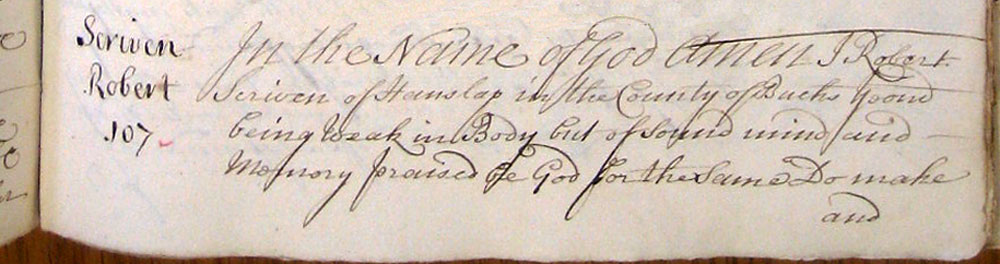 Scriven
Robert
107
In the Name of God Amen I Robert
Scriven of Hanslap in the County of Bucks
being Weak in Body but of sound mind and
Memory praised be God for the same Do make
and